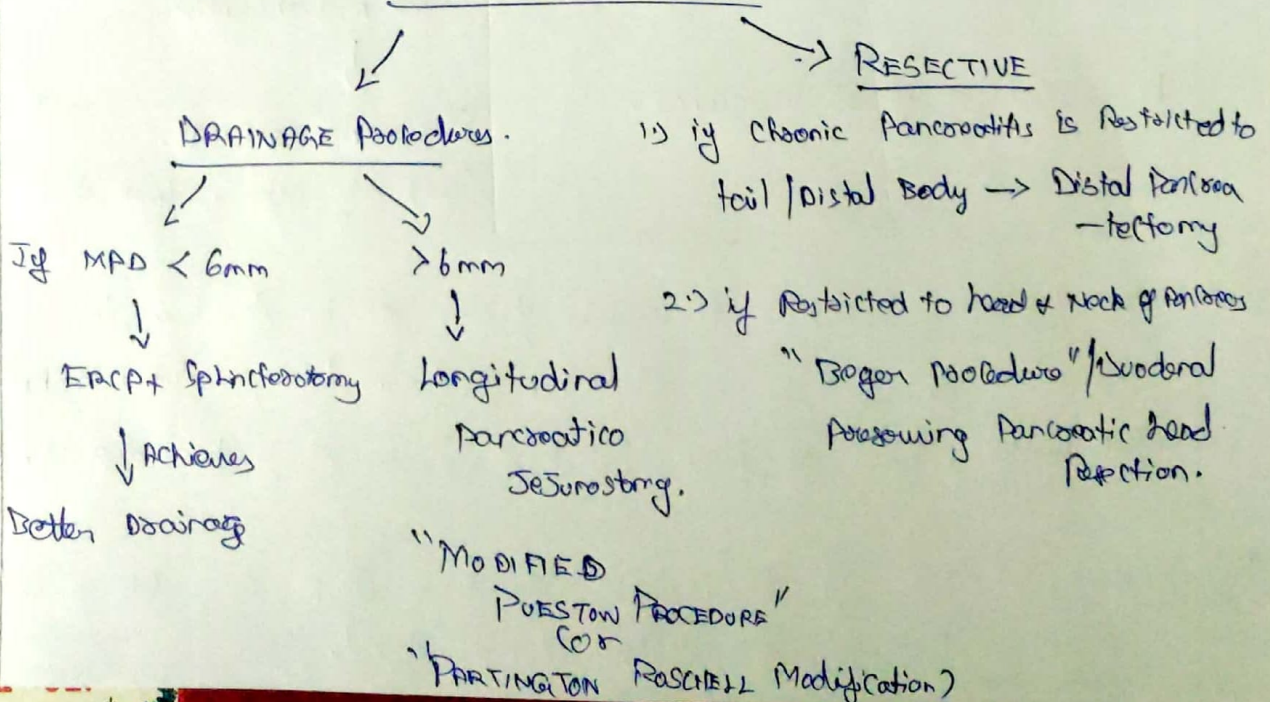 RESECTIVE
DRAINAGE Procedures.
If MPD < 6mm
> 6mm
ERCP + Sphincterotomy
Achieves
Better Drainage
Longitudinal
pancreatico
Jejunostomy.
"MODIFIED
PUESTOW PROCEDURE"
(or
"PARTINGTON ROSCHELL Modification)
1.) if Chronic Pancreatitis is Restricted to
tail / Distal Body → Distal Pancrea
-tectomy
2.) if Restricted to head & Neck of Pancreas
"Beger procedure" / Duodenal
preserving Pancreatic head
Resection.